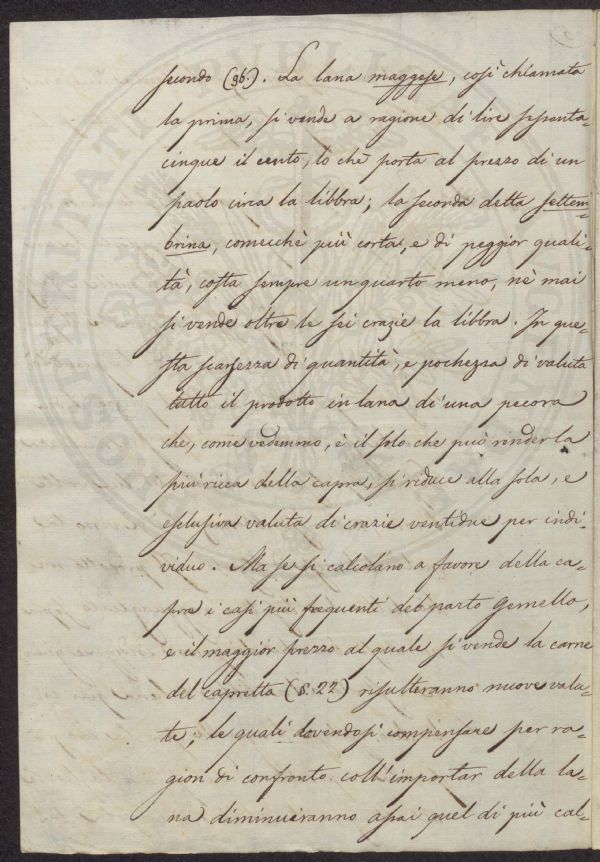 secondo (96.). La lana maggese, così chiamata
la prima, si vende a ragione di lire sessanta-
cinque il cento, lo che porta al prezzo di un
paolo circa la libbra; la seconda detta settem-
brina, comecchè più corta, e di peggior quali-
tà, costa sempre un quarto meno, nè mai
si vende oltre le sei crazie la libbra. In que-
sta scarsezza di quantità, e pochezza di valuta
tutto il prodotto in lana di una pecora
che, come vedemmo, è il solo che può renderla
più ricca della capra, si riduce alla sola, e
esclusiva valuta di crazie ventidue per indi-
viduo. Ma se si calcolano a favore della ca-
pra i casi più frequenti del parto gemello,
e il maggior prezzo al quale si vende la carne
del capretto (§. 22) risulteranno nuove valu-
te; le quali dovendosi compensare per ra-
gion di confronto coll'importar della la-
na diminuiranno assai quel di più cal-